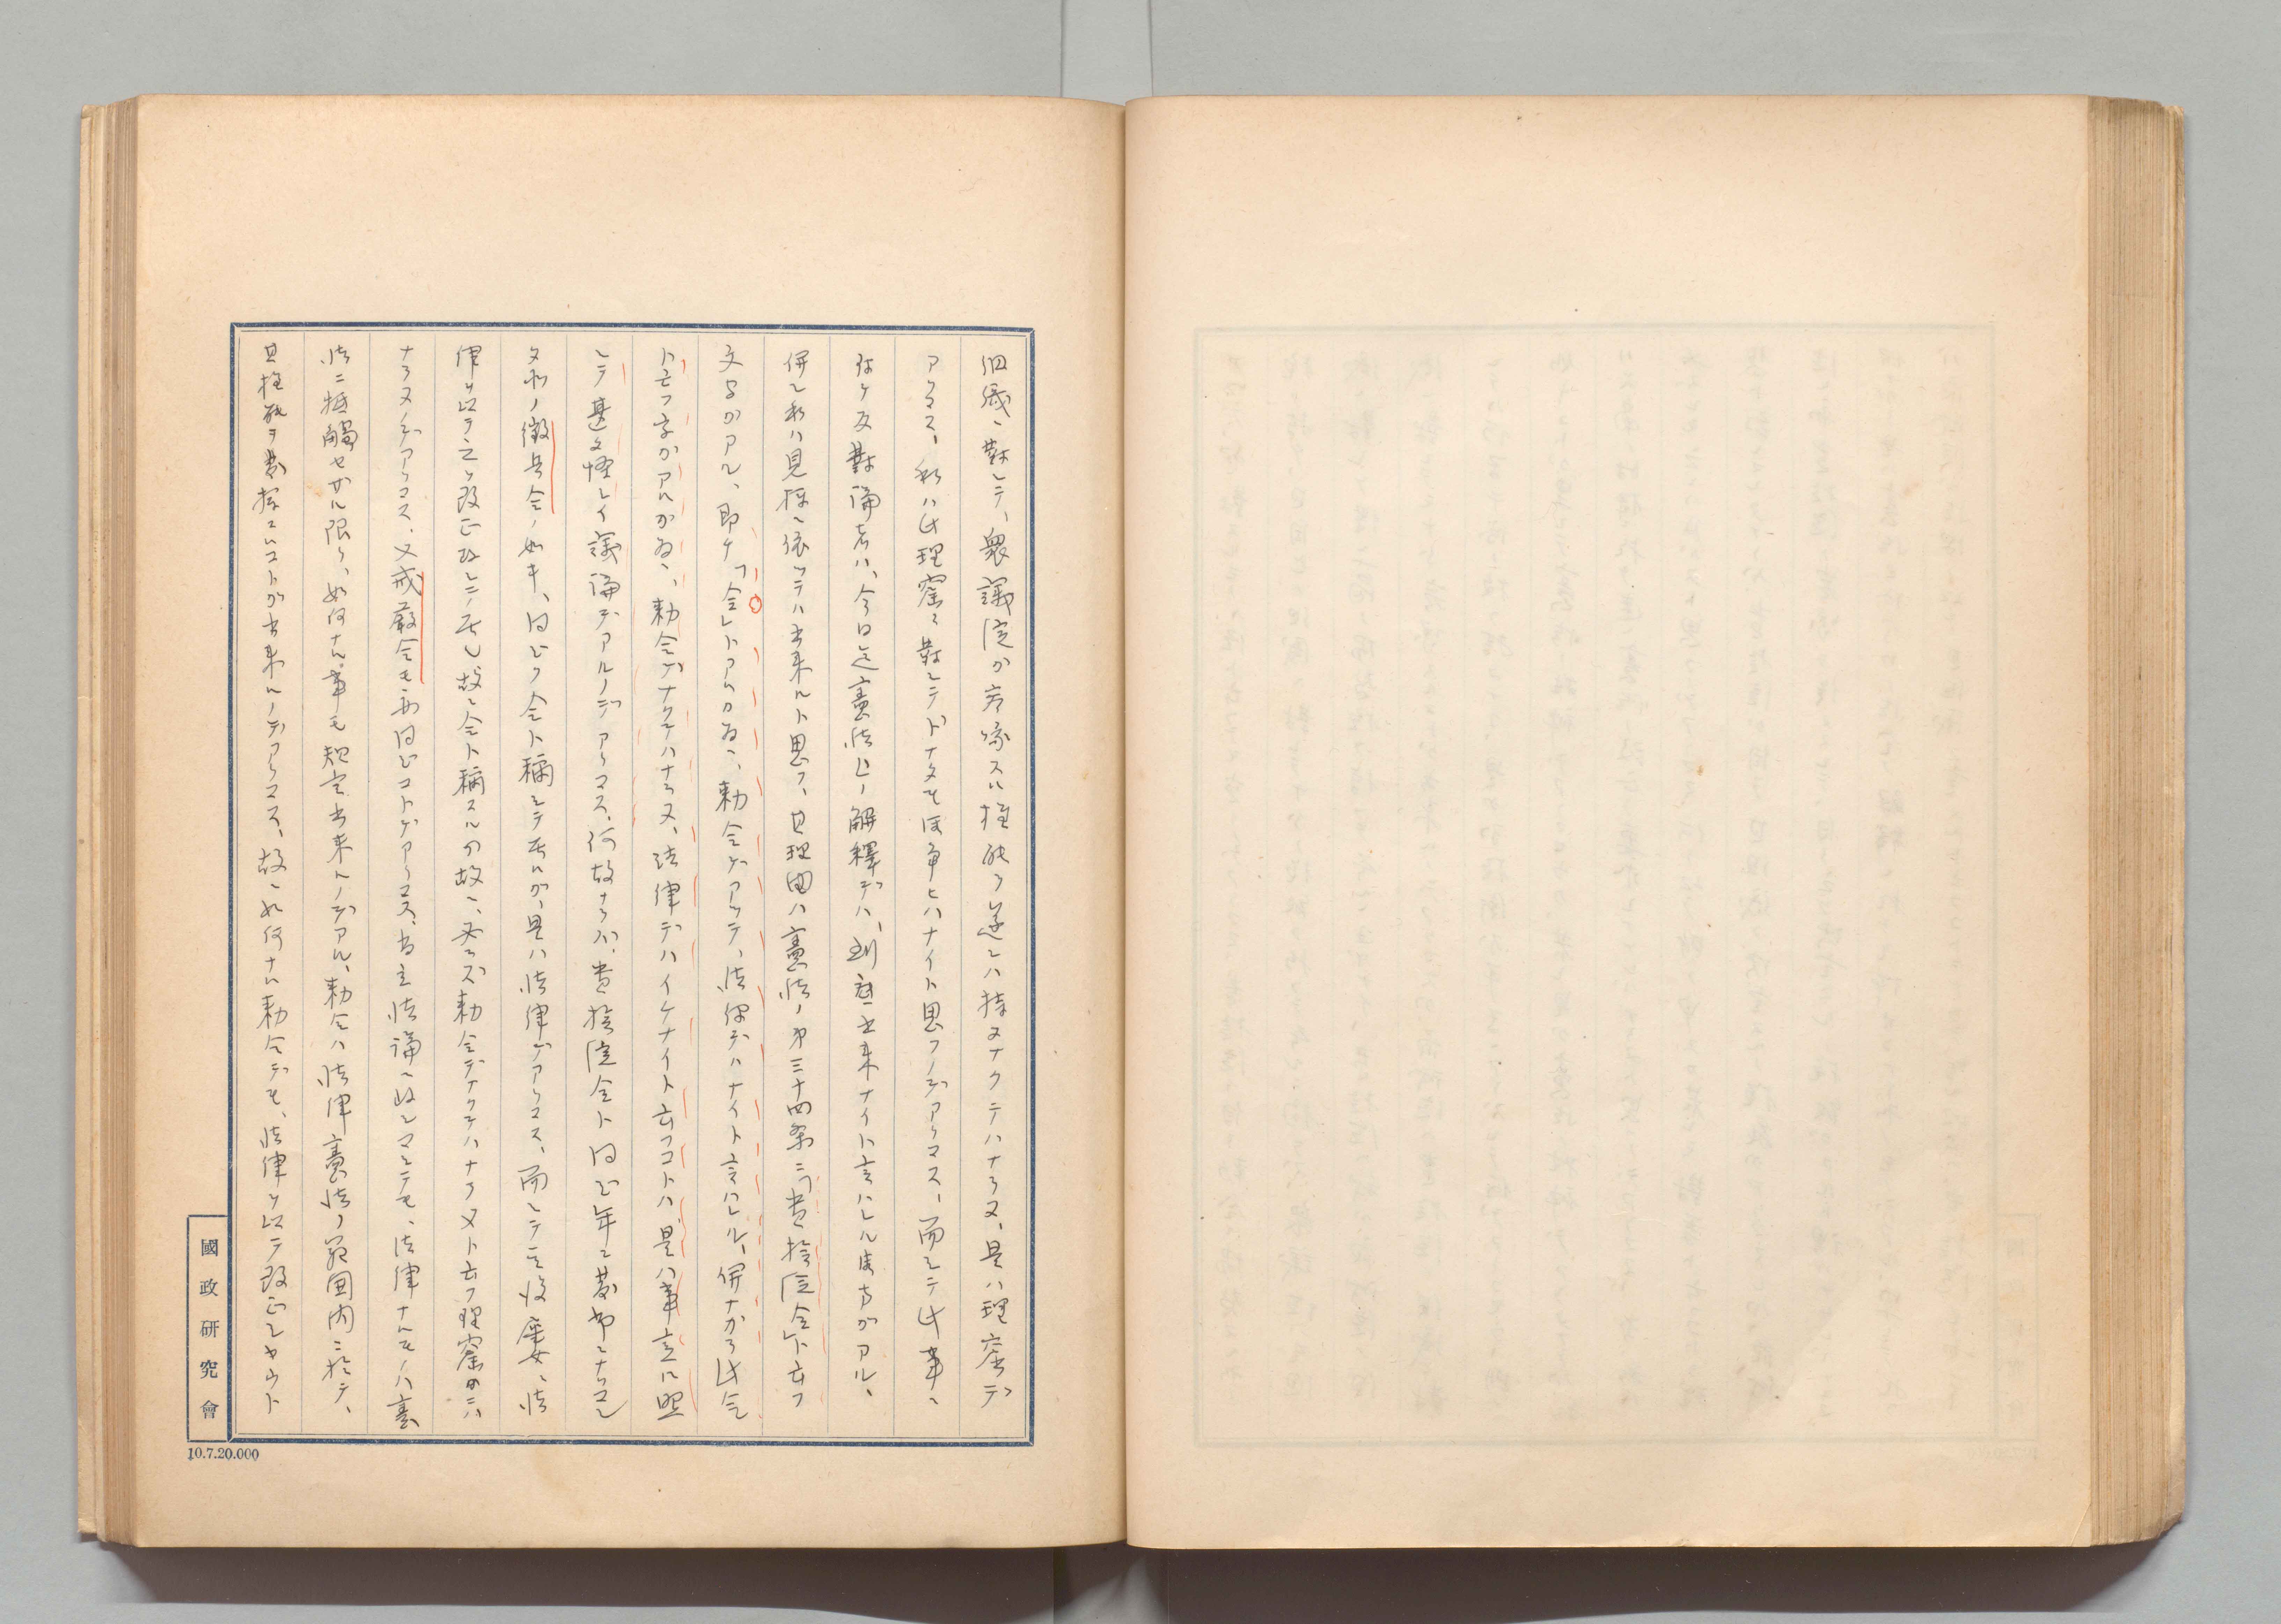 組織ニ対シテ、衆議院ガ容喙スル権能ヲ遂ニハ持タナクテハナラヌ、是ハ理窟デ
アリマス、私ハ此理窟ニ対シテドナタモ御争ヒハナイト思フノデアリマス、而シテ此事ニ
付ケ反対論者ハ、今日迄憲法上ノ解釋デハ、到底出来ナイト言ハレル御方ガアル、
併シ私ハ見様ニ依ッテハ出来ルト思フ、其理由ハ憲法ノ第三十四条ニ「貴族院令」ト云フ
文字ガアル、即チ「令」トアルガ為ニ、勅令デアッテ、法律デハナイト言ハレル、併ナガラ此令
ト云フ字ガアルガ為ニ、勅令デナクテハナラヌ、法律デハイケナイト云フコトハ、是ハ事実ニ照
シテ甚ダ怪シイ議論デアルノデアリマス、何故ナラバ、貴族院令ト同ジ年ニ発布ニナリマシ
タ所ノ徴兵令ノ如キ、同ジク令ト稱シテ居ルガ、是ハ法律デアリマス、而シテ其後屡々法
律ヲ以テ之ヲ改正致シテ居ル故ニ令ト稱スルガ故ニ、必ズ勅令デナクテハナラヌト云フ理窟ガニハ
ナラヌノデアリマス、又戒厳令モ亦同ジコトデアリマス、当立法論ニ致シマシテモ、法律ナルモノハ憲
法ニ牴觸セザル限リ、如何ナル事モ規定出来ルノデアル、勅令ハ法律憲法ノ範囲内ニ於テ、
其権能ヲ発揮スルコトガ出来ルノデアリマス、故ニ如何ナル勅令デモ、法律ヲ以テ改正シヤウト
國政研究會
10.7.20.000